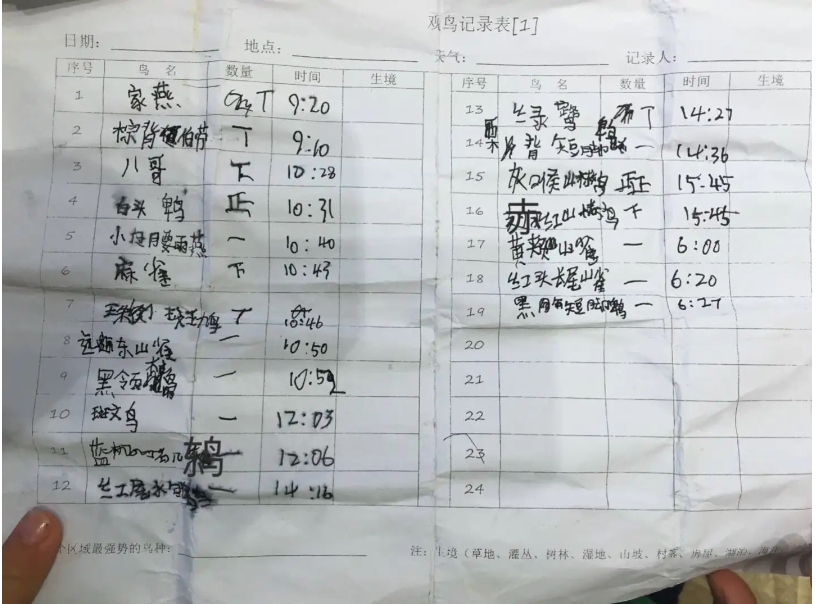 观鸟记录表[1]
日期: 地点: 天气: 记录人:
序号 鸟 名 数量 时间 生境
1 家燕 9:20
2 棕背伯劳 丅 9:10
3 八哥 下 10:28
4 白头鹎 正 10:31
5 小白腰雨燕 一 10:40
6 麻雀 下 10:43
7 丅 10:46
8 远东山雀 一 10:50
9 黑领椋鸟 一 10:52
10 斑文鸟 一 12:03
11 蓝 鸫 一 12:06
12 红尾水鸲 一 14:16
序号 鸟 名 数量 时间 生境
13 丝录鹭 丅 14:27
14 栗背短脚鹎 一 14:36
15 灰口侯山椒鸟 正 15:45
16 赤红山椒鸟 下 15:45
17 黄颊山雀 一 6:00
18 红头长尾山雀 一 6:20
19 黑 短脚鹎 一 6:27
20
21
22
23
24
区域最强势的鸟种:
注: 生境(草地、灌丛、树林、湿地、山坡、村寨、房屋、湖泊、